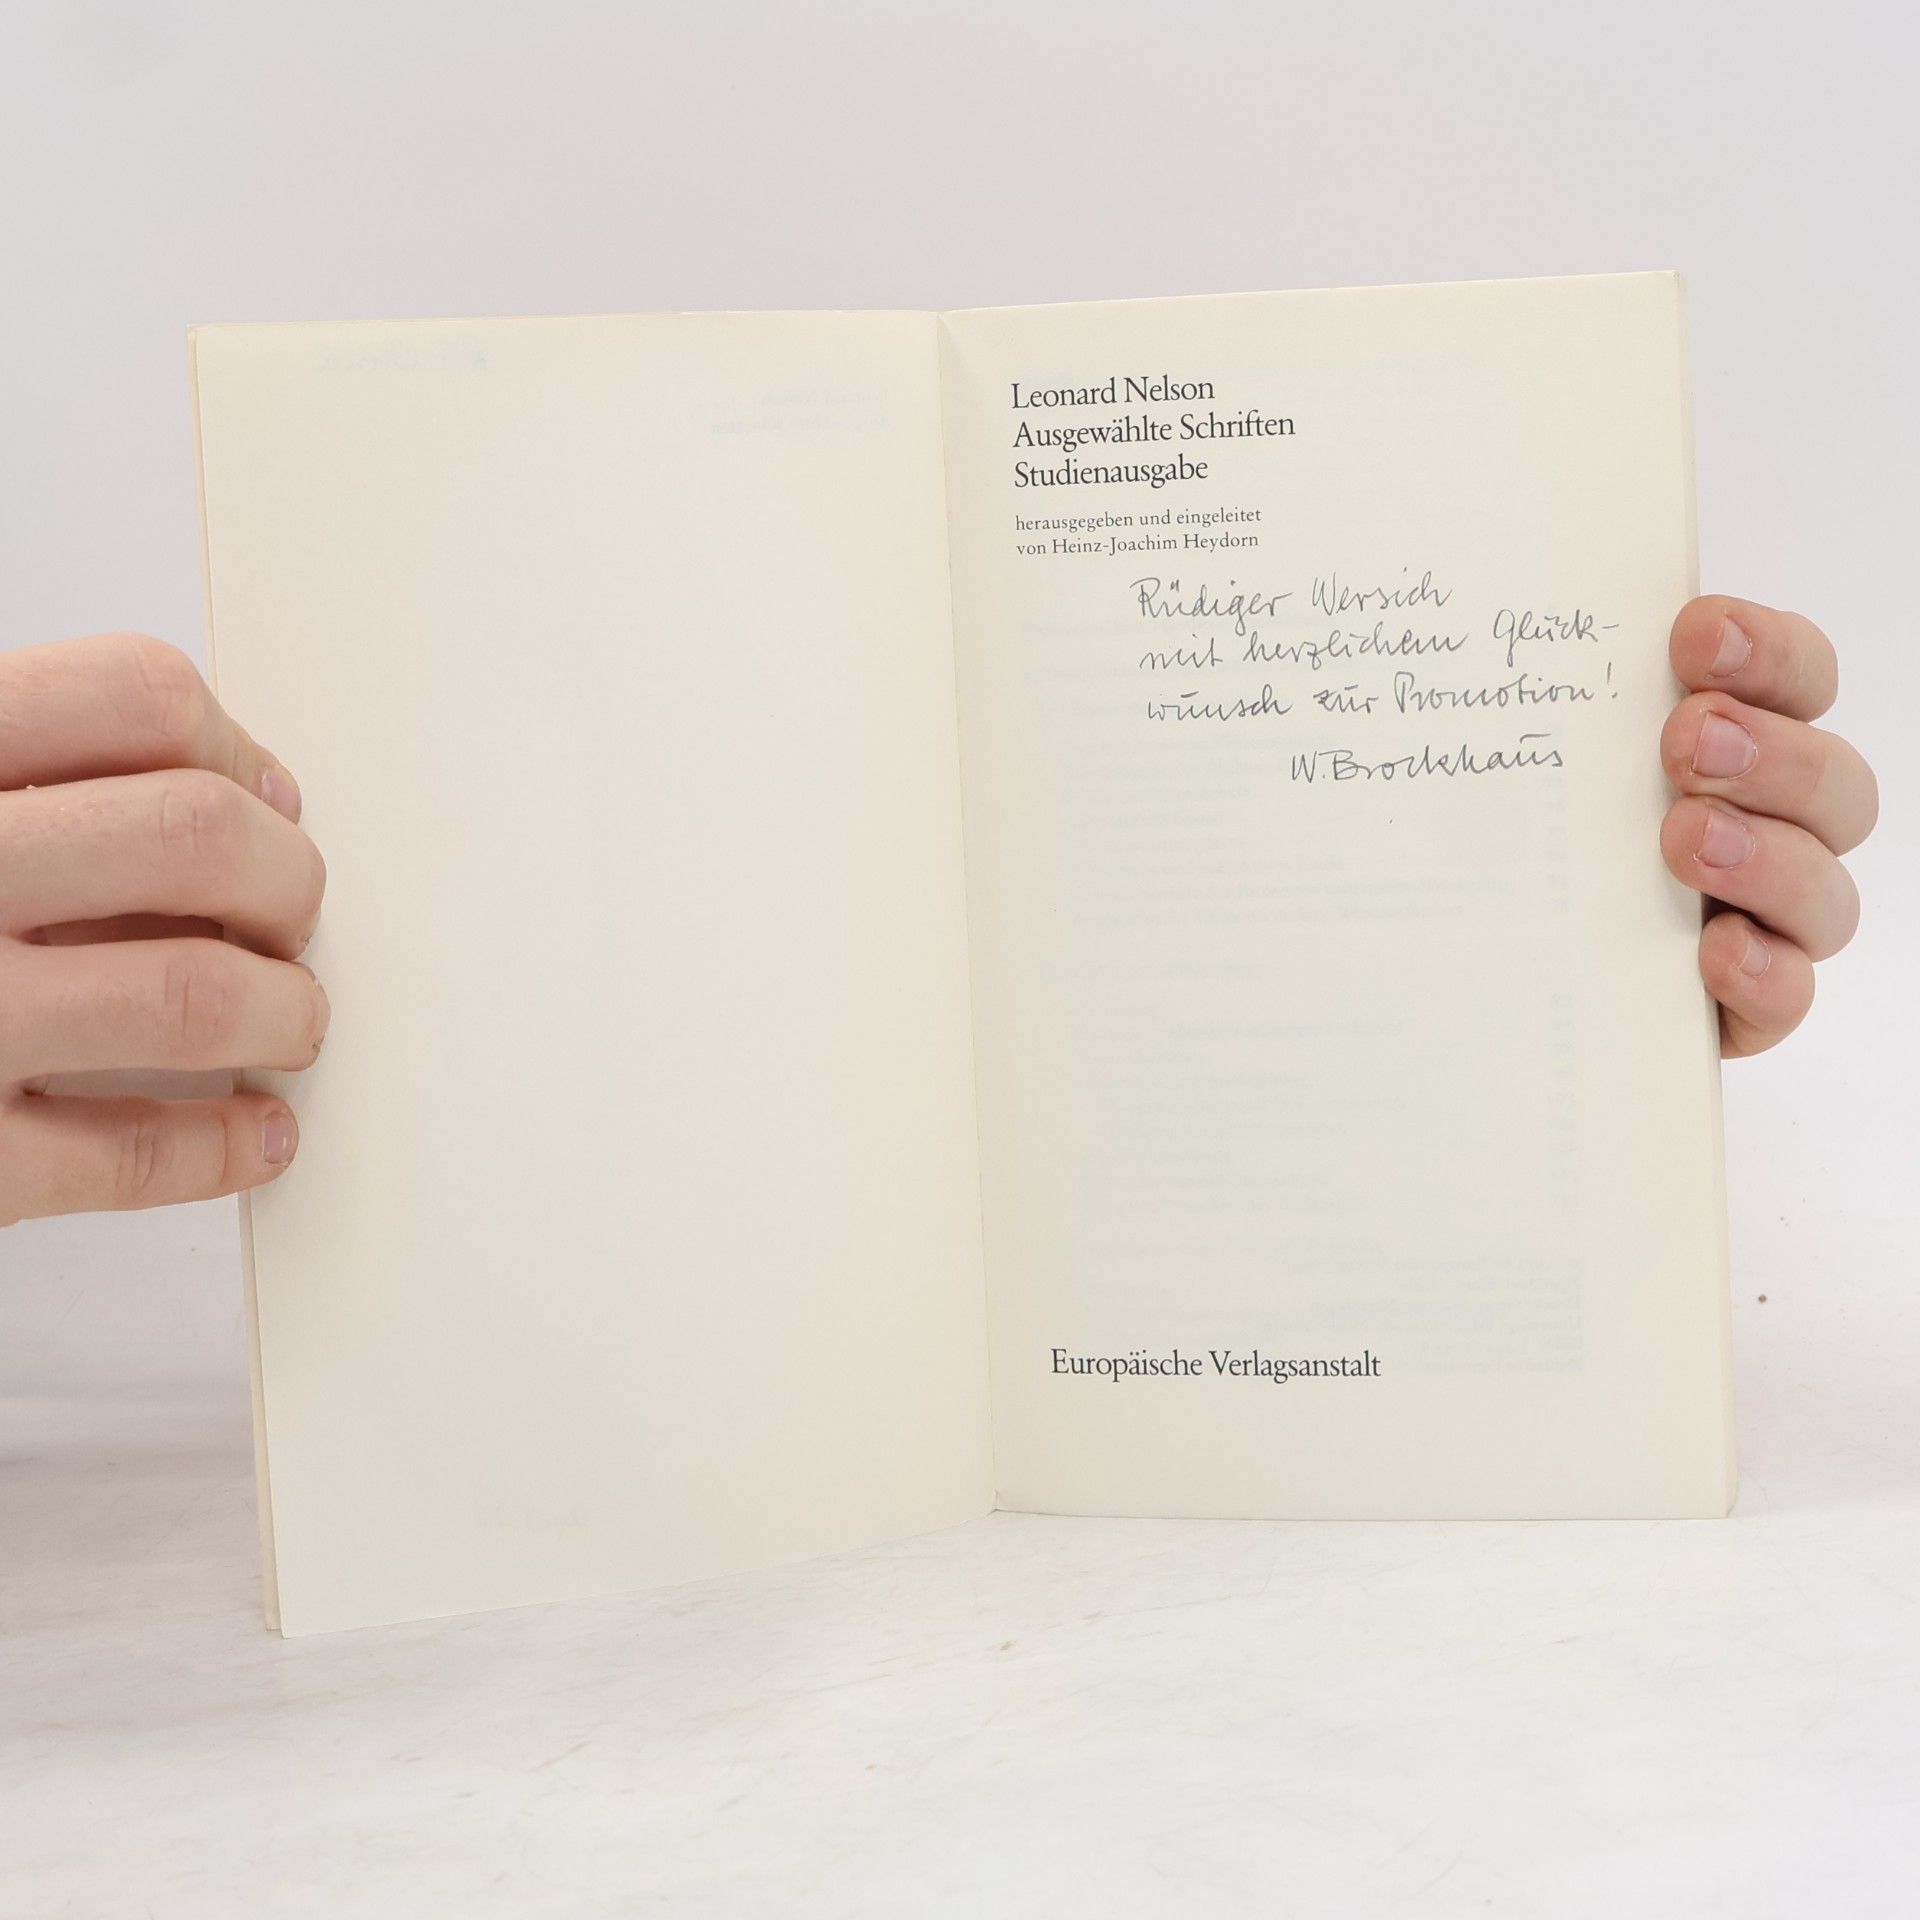 Leonard Nelson
Ausgewählte Schriften
Studienausgabe
herausgegeben und eingeleitet
von Heinz-Joachim Heydorn
Rüdiger Wersich
mit herzlichem Glück-
wunsch zur Promotion!
W. Brockhaus
Europäische Verlagsanstalt